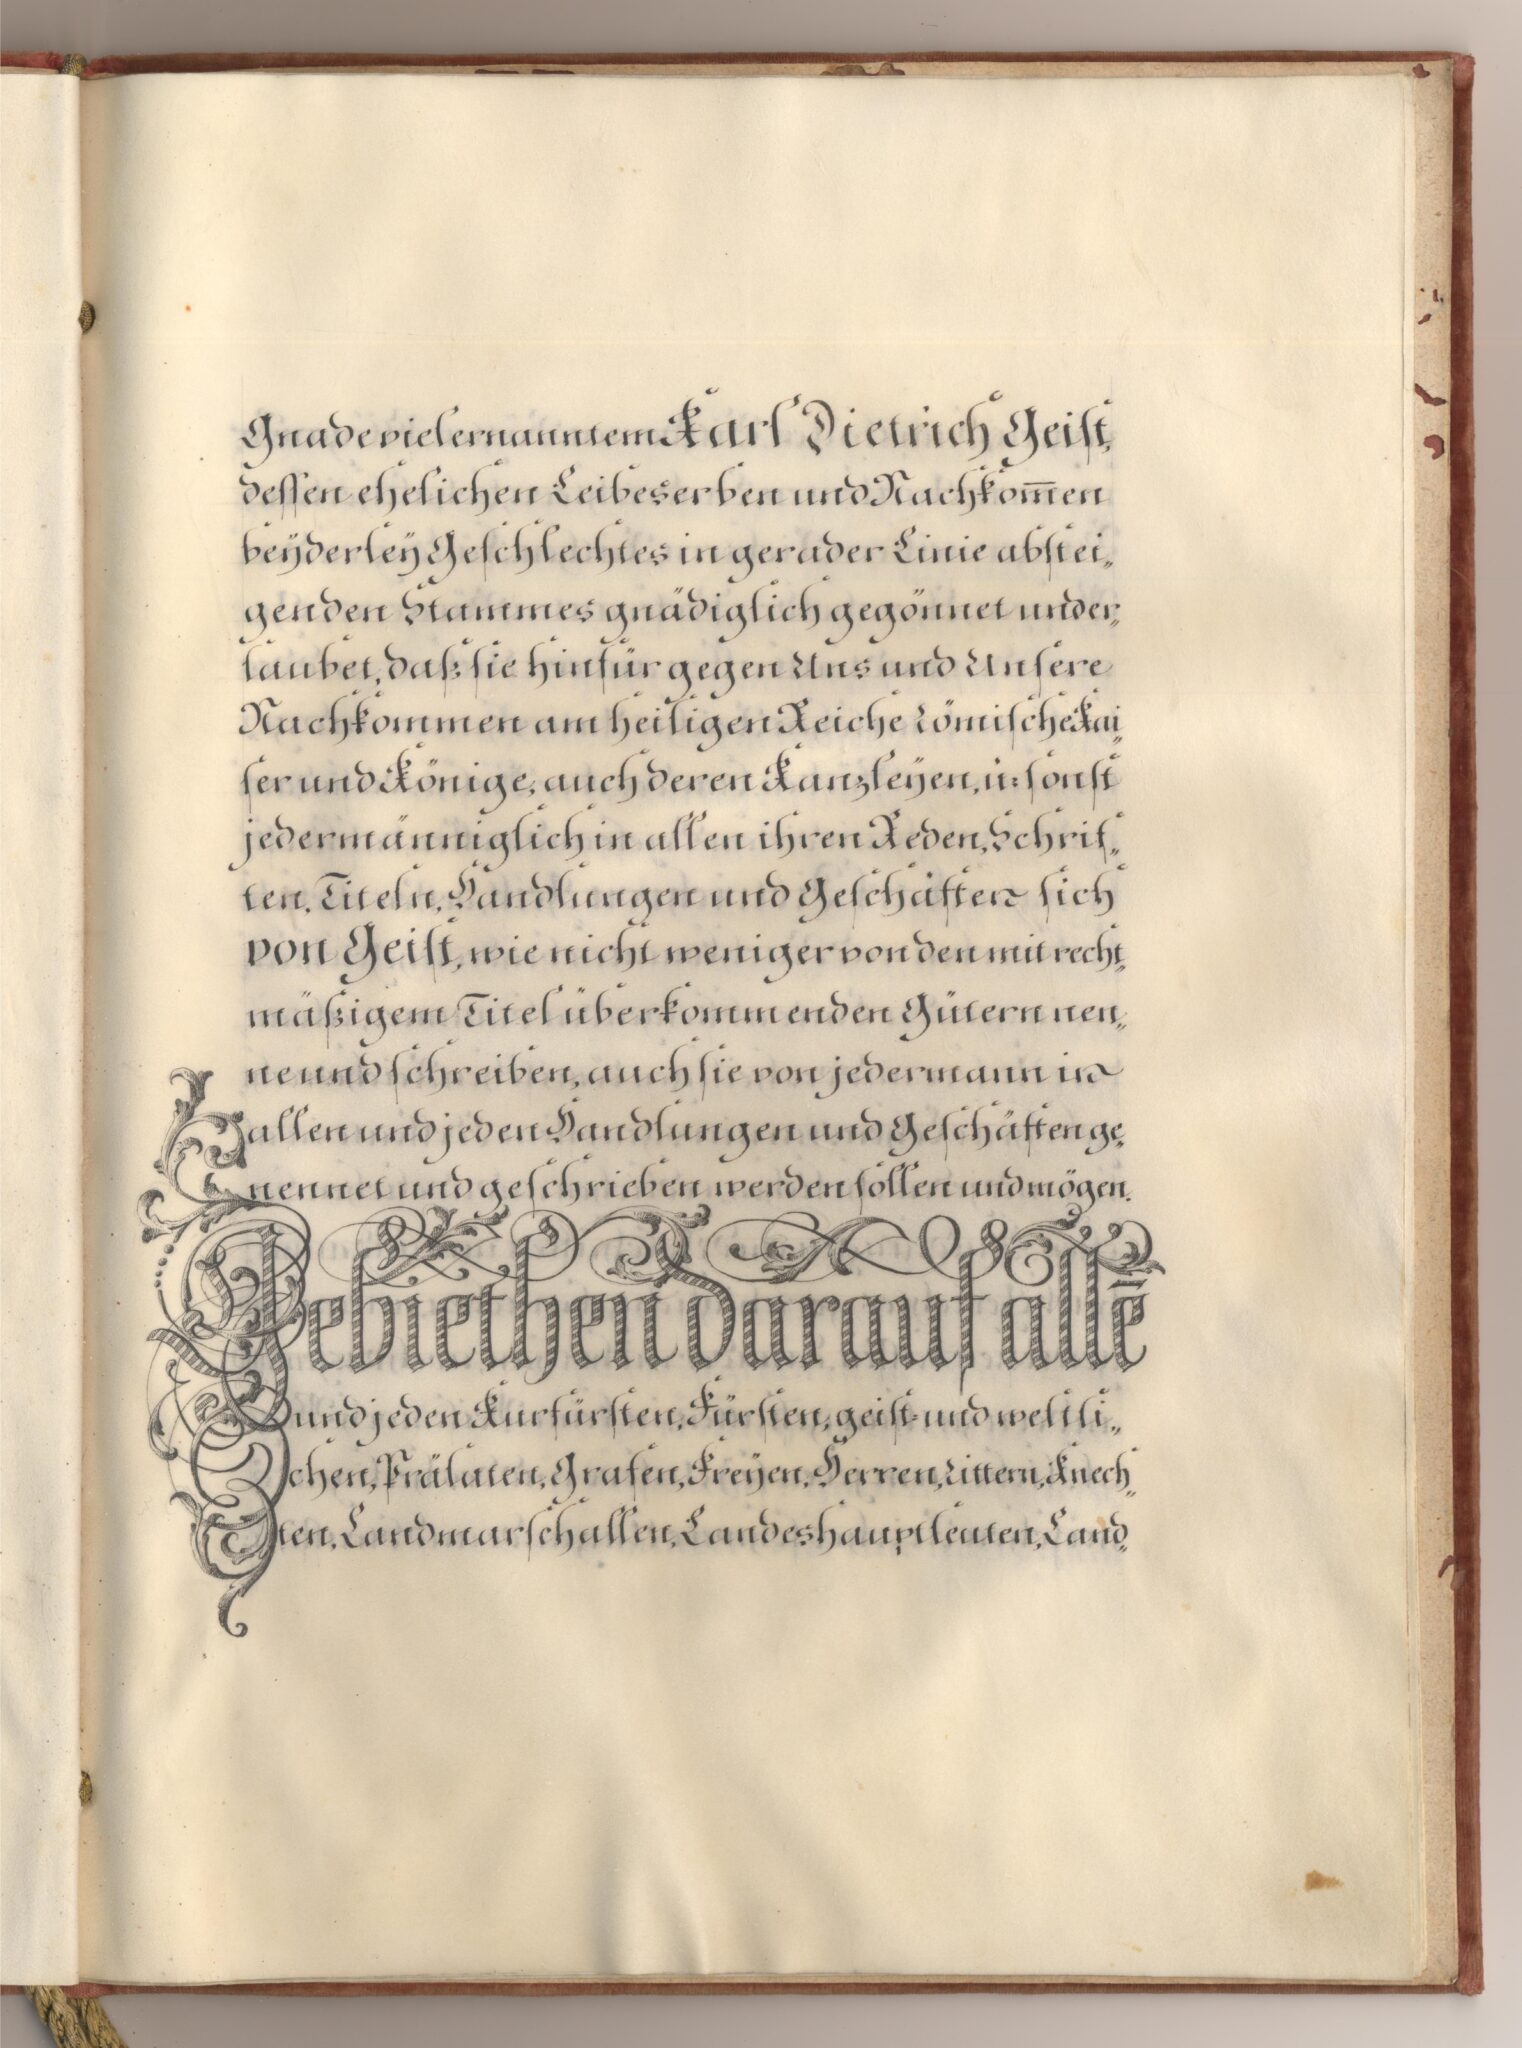 Gnade vielernanntem Karl Dietrich Geist,
dessen ehelichen Leibeserben und Nachkom̅en
beÿderleÿ Geschlechtes in gerader Linie abstei„
genden Stammes gnädiglich gegönnet und er„
laubet, daß sie hinfür gegen Uns und Unsere
Nachkommen am heiligen Reiche Römische Kai„
ser und Könige, auch deren Kanzleÿen, u: sonst
jedermänniglich in allen ihren Reden, Schrif„
ten, Titeln, Handlungen und Geschäften sich
von Geist, wie nicht weniger von den mit recht„
mäßigem Titel überkommenden Gütern nen„
ne und schreiben, auch sie von jedermann in
allen und jeden Handlungen und Geschäften ge„
nennet und geschrieben werden sollen und mögen.
Gebiethen darauf alle̅
und jeden Kurfürsten, Fürsten, geist- und weltli„
chen, Prälaten, Grafen, Freÿen, Herren, Rittern, Knech„
ten, Landmarschallen, Landeshauptleuten, Land„